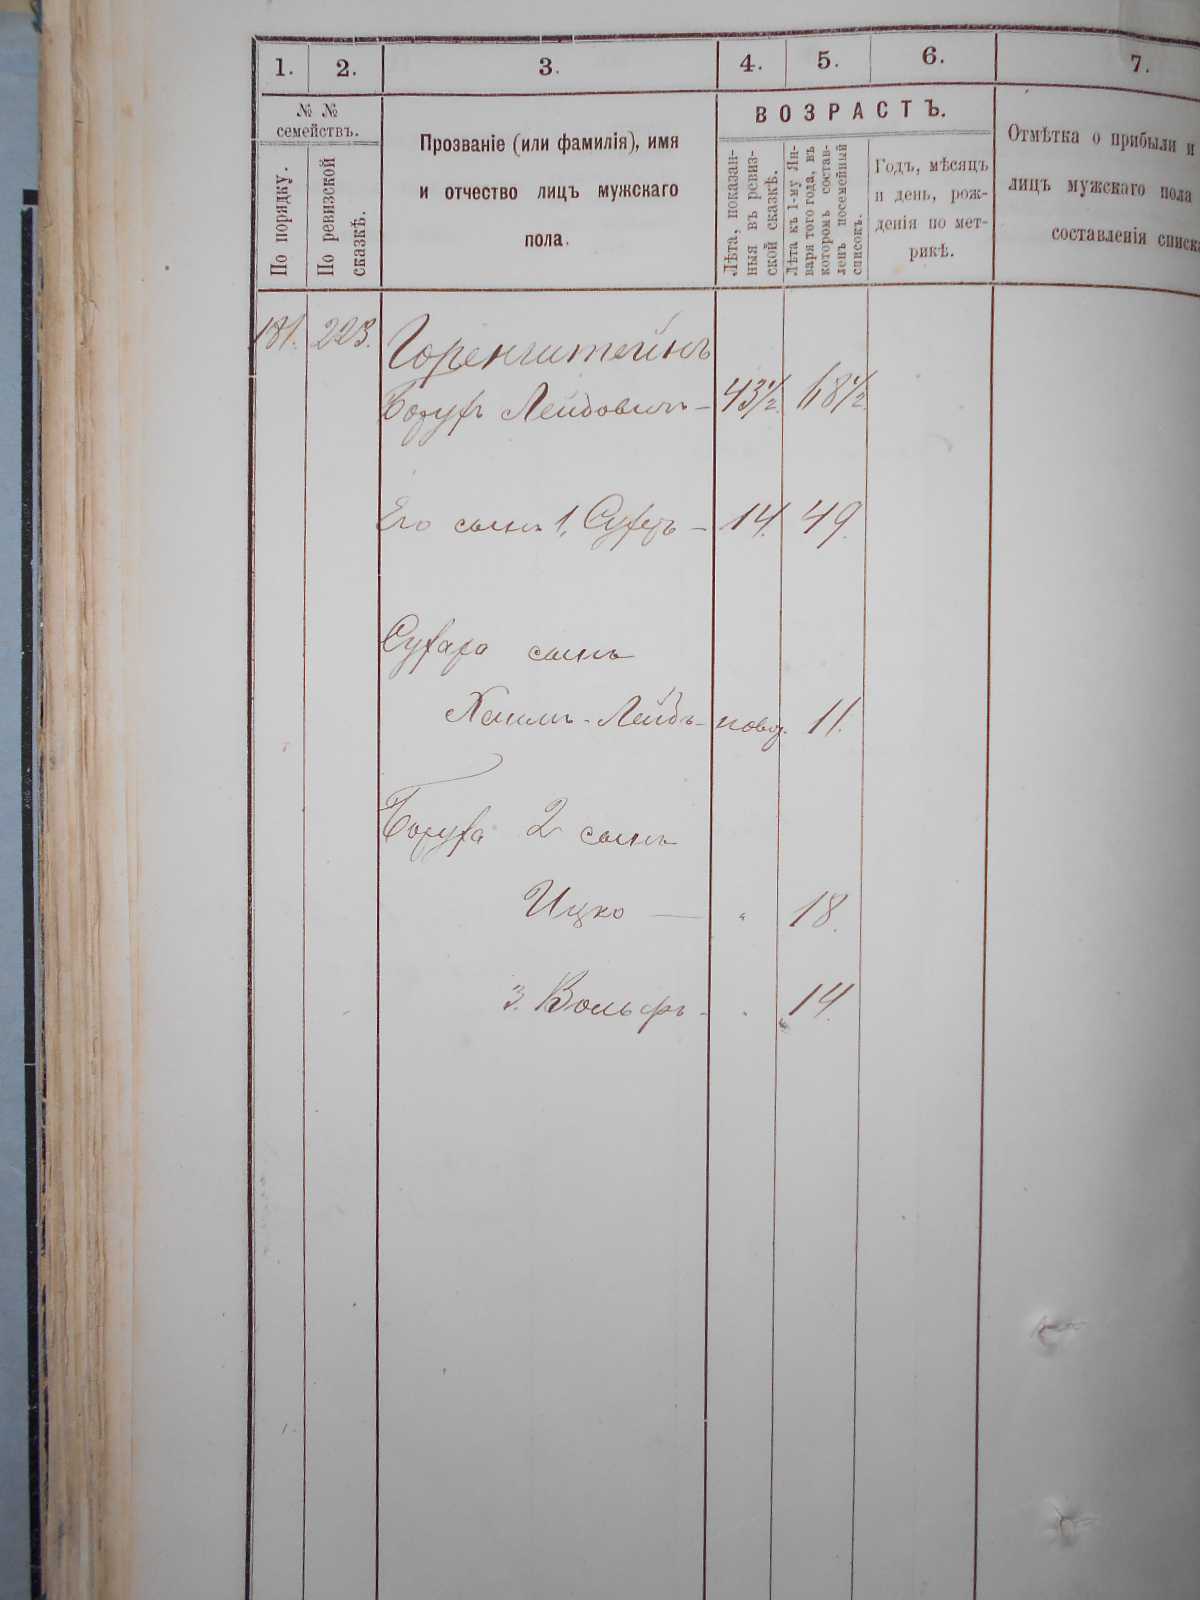 1. 2. 3. 4. 5. 6. 7.
№ № семействъ.
По порядку.
По ревизской сказкѣ.
Прозваніе (или фамилія), имя
и отчество лицъ мужскаго
пола.
ВОЗРАСТЪ.
Лѣта, показан-
ныя въ ревиз-
ской сказкѣ.
Лѣта къ 1-му Ян-
варя того года, въ
которомъ состав-
ленъ посемейный
списокъ.
Годъ, мѣсяцъ
и день, рож-
денія по мет-
рикѣ.
Отмѣтка о прибыли и
лицъ мужскаго пола
составленія списка
181. 223. Горенштейнъ
Борухъ Лейбовичъ – 43½ 68½
Его сынъ 1, – 14. 49.
сынъ
Хаимъ-Лейбъ – новор. 11.
Боруха 2 сынъ
Ицко — " 18.
3. Вольфъ - " 14.